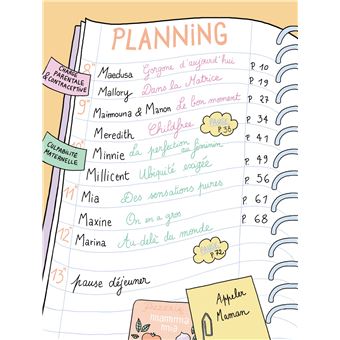 PLANNING
8h
CHARGE PARENTALE & CONTRACEPTIVE
Maedusa Gorgone d'aujourd'hui P. 10
Mallory Dans la Matrice P. 19
9h
Maïmouna & Manon Le bon moment P. 27
Meredith Childfree P. 34
PAUSE P. 38
10h
CULPABILITÉ MATERNELLE
Minnie La perfection féminin P. 41
Millicent Ubiquité exigée P. 49
11h
Mia Des sensations pures P. 56
Maxine On en a gros P. 61
12h
Marina Au-delà du monde P. 68
P. 72
13h
pause déjeuner
PIZZERIA
mamma mia
Appeler
Maman